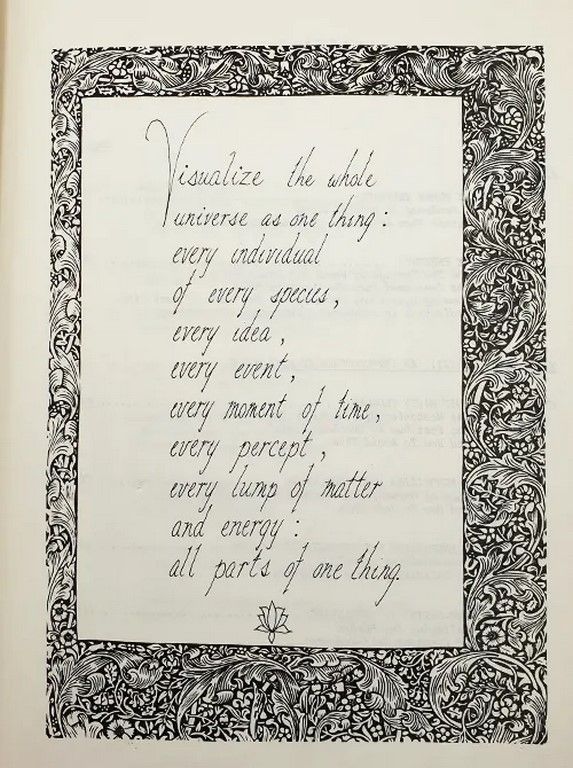 Visualize the whole
universe as one thing:
every individual
of every species,
every idea,
every event,
every moment of time,
every percept,
every lump of matter
and energy:
all parts of one thing.